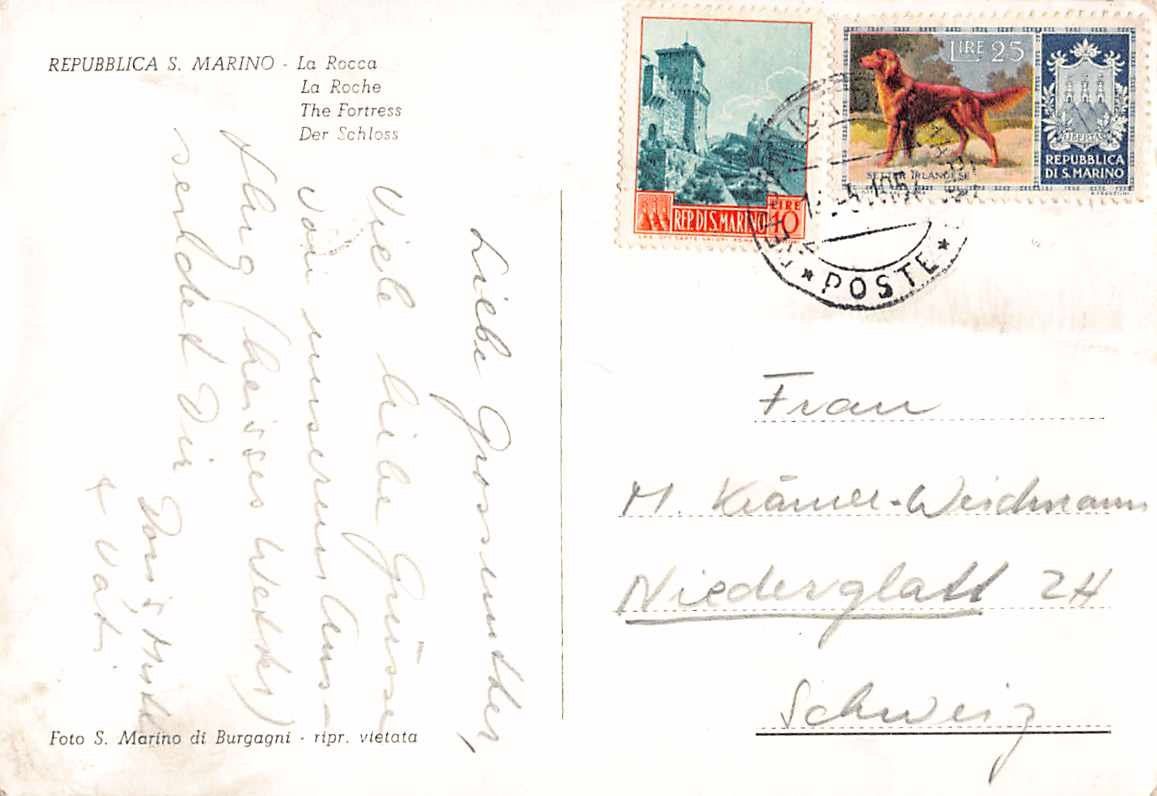 REPUBBLICA S. MARINO - La Rocca
La Roche
The Fortress
Der Schloss
REP. DI S. MARINO
LIRE
10
LIRE 25
SETTER IRLANDESE
LIBERTAS
REPUBBLICA
DI S. MARINO
* POSTE *
Liebe Grossmutter,
Viele liebe Grüsse
von unserem Aus-
flug (heisses Wetter)
sendet Dir
Doris, Mutti
& Vati
Frau
M. Krämer-Weidmann
Niederglatt ZH
Schweiz
Foto S. Marino di Burgagni - ripr. vietata